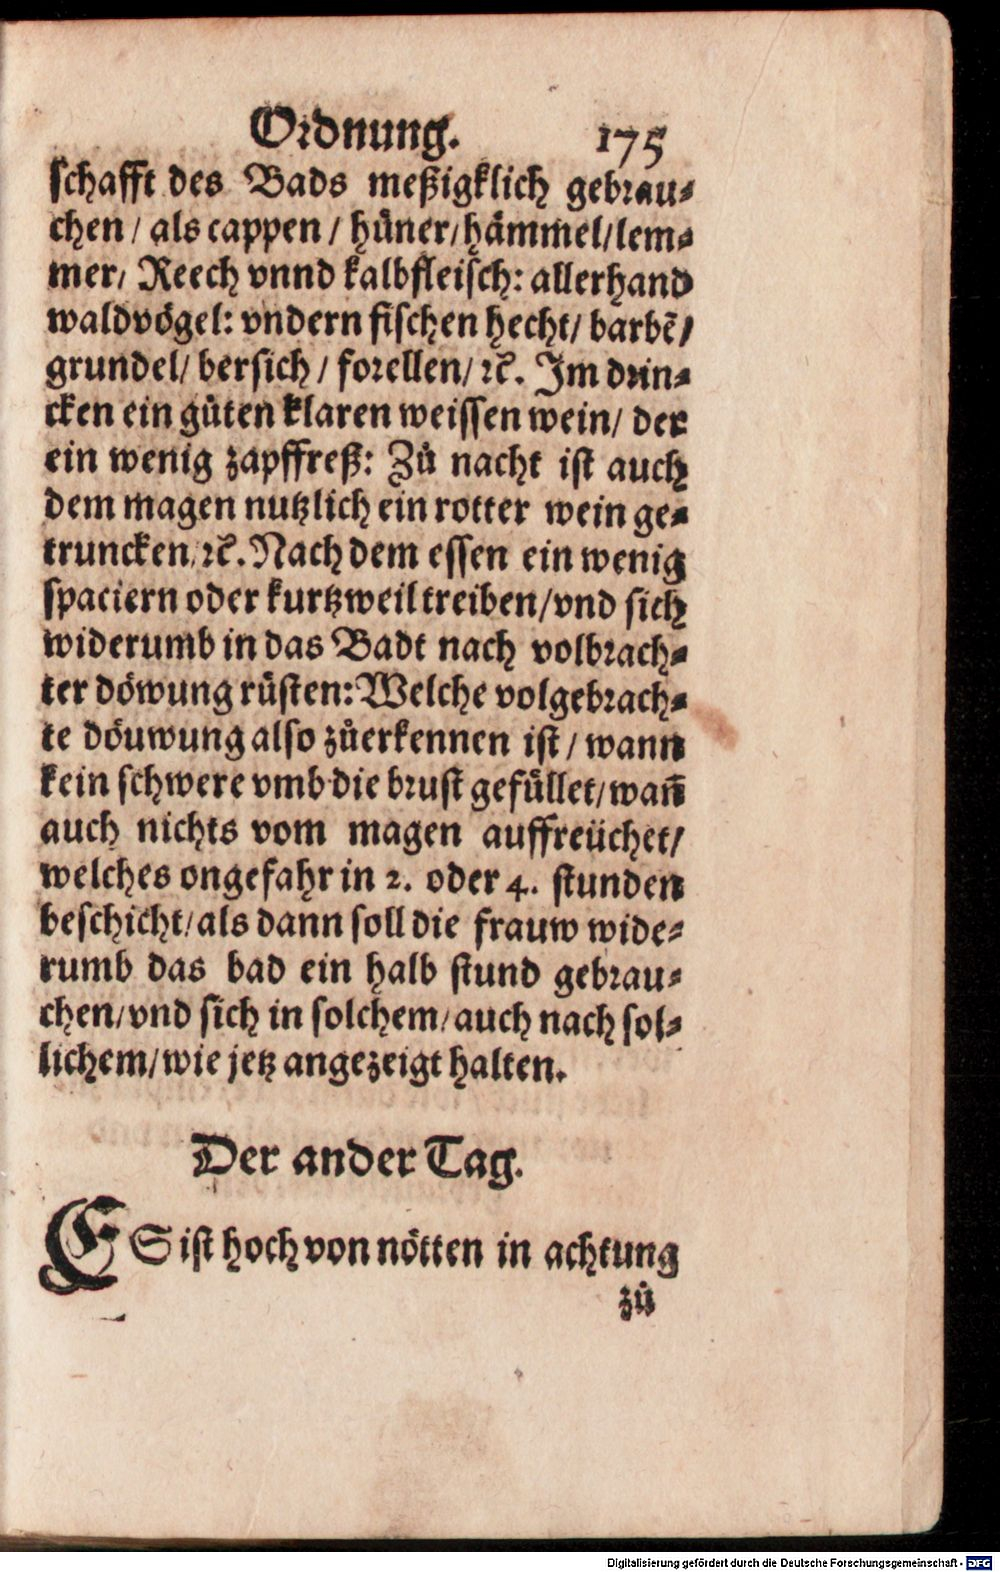 Ordnung. 175
schafft des Bads meßigklich gebrau⸗
chen / als cappen / hüner / hämmel / lem⸗
mer / Reech vnnd kalbfleisch: allerhand
waldvögel: vndern fischen hecht / barbẽ /
grundel / bersich / forellen / ꝛc̃. Im drin⸗
cken ein gůten klaren weissen wein / der
ein wenig zapffreß: Zů nacht ist auch
dem magen nutzlich ein rotter wein ge⸗
truncken, ꝛc̃. Nach dem essen ein wenig
spaciern oder kurtzweil treiben / vnd sich
widerumb in das Badt nach volbrach⸗
ter döwung rüsten: Welche volgebrach⸗
te döuwung also zůerkennen ist / wann
kein schwere vmb die brust gefüllet / wañ
auch nichts vom magen auffreüchet /
welches ongefahr in 2. oder 4. stunden
beschicht / als dann soll die frauw wide⸗
rumb das bad ein halb stund gebrau⸗
chen / vnd sich in solchem / auch nach sol⸗
lichem / wie jetz angezeigt halten.
Der ander Tag.
ES ist hoch von nötten in achtung
zů
Digitalisierung gefördert durch die Deutsche Forschungsgemeinschaft - DFG